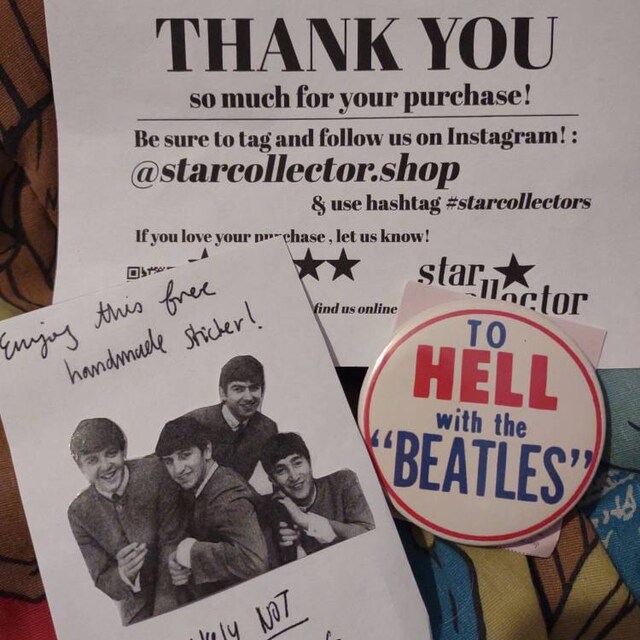 THANK YOU
so much for your purchase!
Be sure to tag and follow us on Instagram! :
@starcollector.shop
& use hashtag #starcollectors
If you love your purchase, let us know!
star
find us online
Enjoy this free
handmade sticker!
TO
HELL
with the
"BEATLES"
NOT